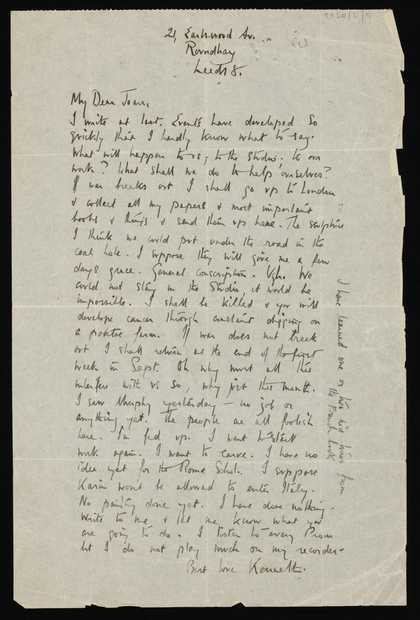 21, Earlswood Av.
Roundhay
Leeds 8.
My Dear Joan,
I write at last. Events have developed so
quickly that I hardly know what to say.
What will happen to us; to the studio; to our
work? What shall we do to help ourselves?
If war breaks out I shall go up to London
& collect all my papers & most important
books & things & send them up here. The sculpture
I think we could put under the road in the
coal hole. I suppose they will give me a few
days grace. General conscription. Ugh. We
could not stay in the Studio, it would be
impossible. I shall be killed & you will
develope cancer through constant digging on
a potatoe farm. If war does not break
out I shall return at the end of the first
week in Sept. Oh why must all this
interfere with us so, why just this month.
I saw Murphy yesterday - no job or
anything yet. The people are all foolish
here. I'm fed up. I want to start
work again. I want to carve. I have no
idea yet for the Rome Schol. I suppose
Karin wont be allowed to enter Italy.
No painting done yet. I have done nothing.
Write to me & let me know what you
are going to do. I listen to every Prom
but I do not play much on my recorder.
Best love Kenneth.
I have learned one or two new tunes from
the French book